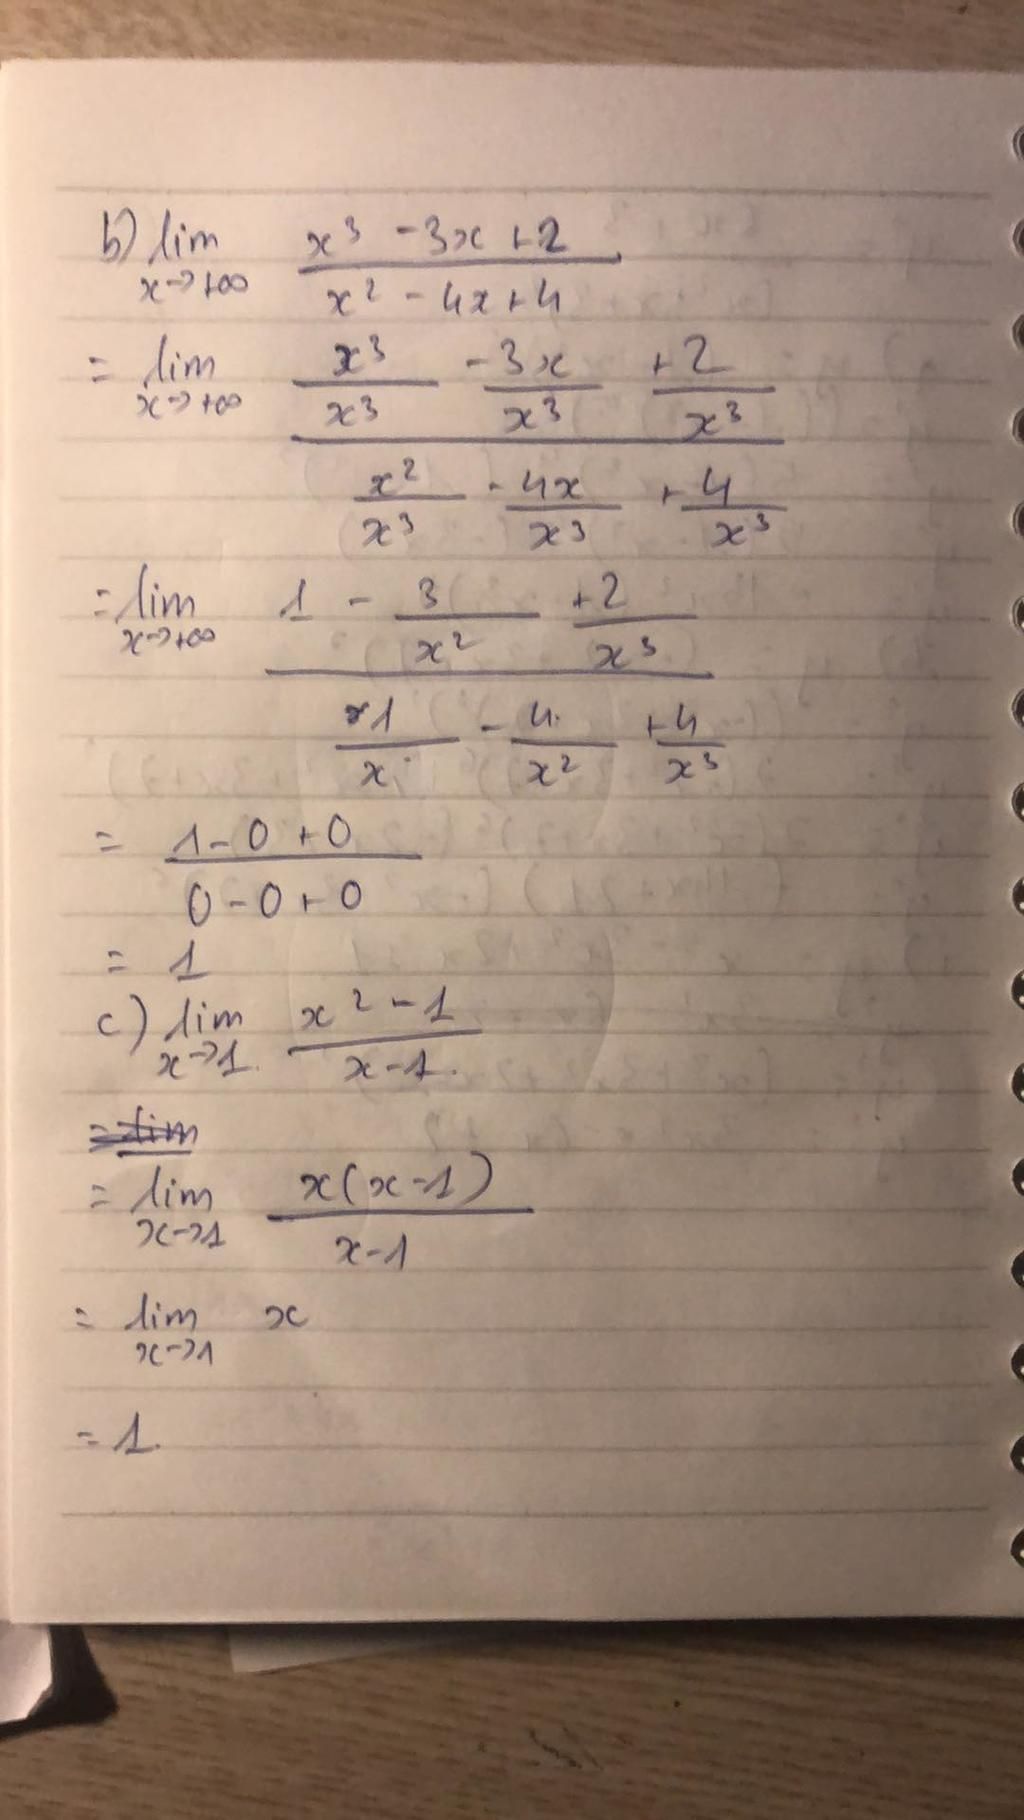 b) lim x→+∞ (x³ - 3x + 2) / (x² - 4x + 4)
= lim x→+∞ (x³/x³ - 3x/x³ + 2/x³) / (x²/x³ - 4x/x³ + 4/x³)
= lim x→+∞ (1 - 3/x² + 2/x³) / (1/x - 4/x² + 4/x³)
= (1 - 0 + 0) / (0 - 0 + 0)
= 1
c) lim x→1 (x² - 1) / (x - 1)
= lim
= lim x→1 x(x - 1) / (x - 1)
= lim x→1 x
= 1